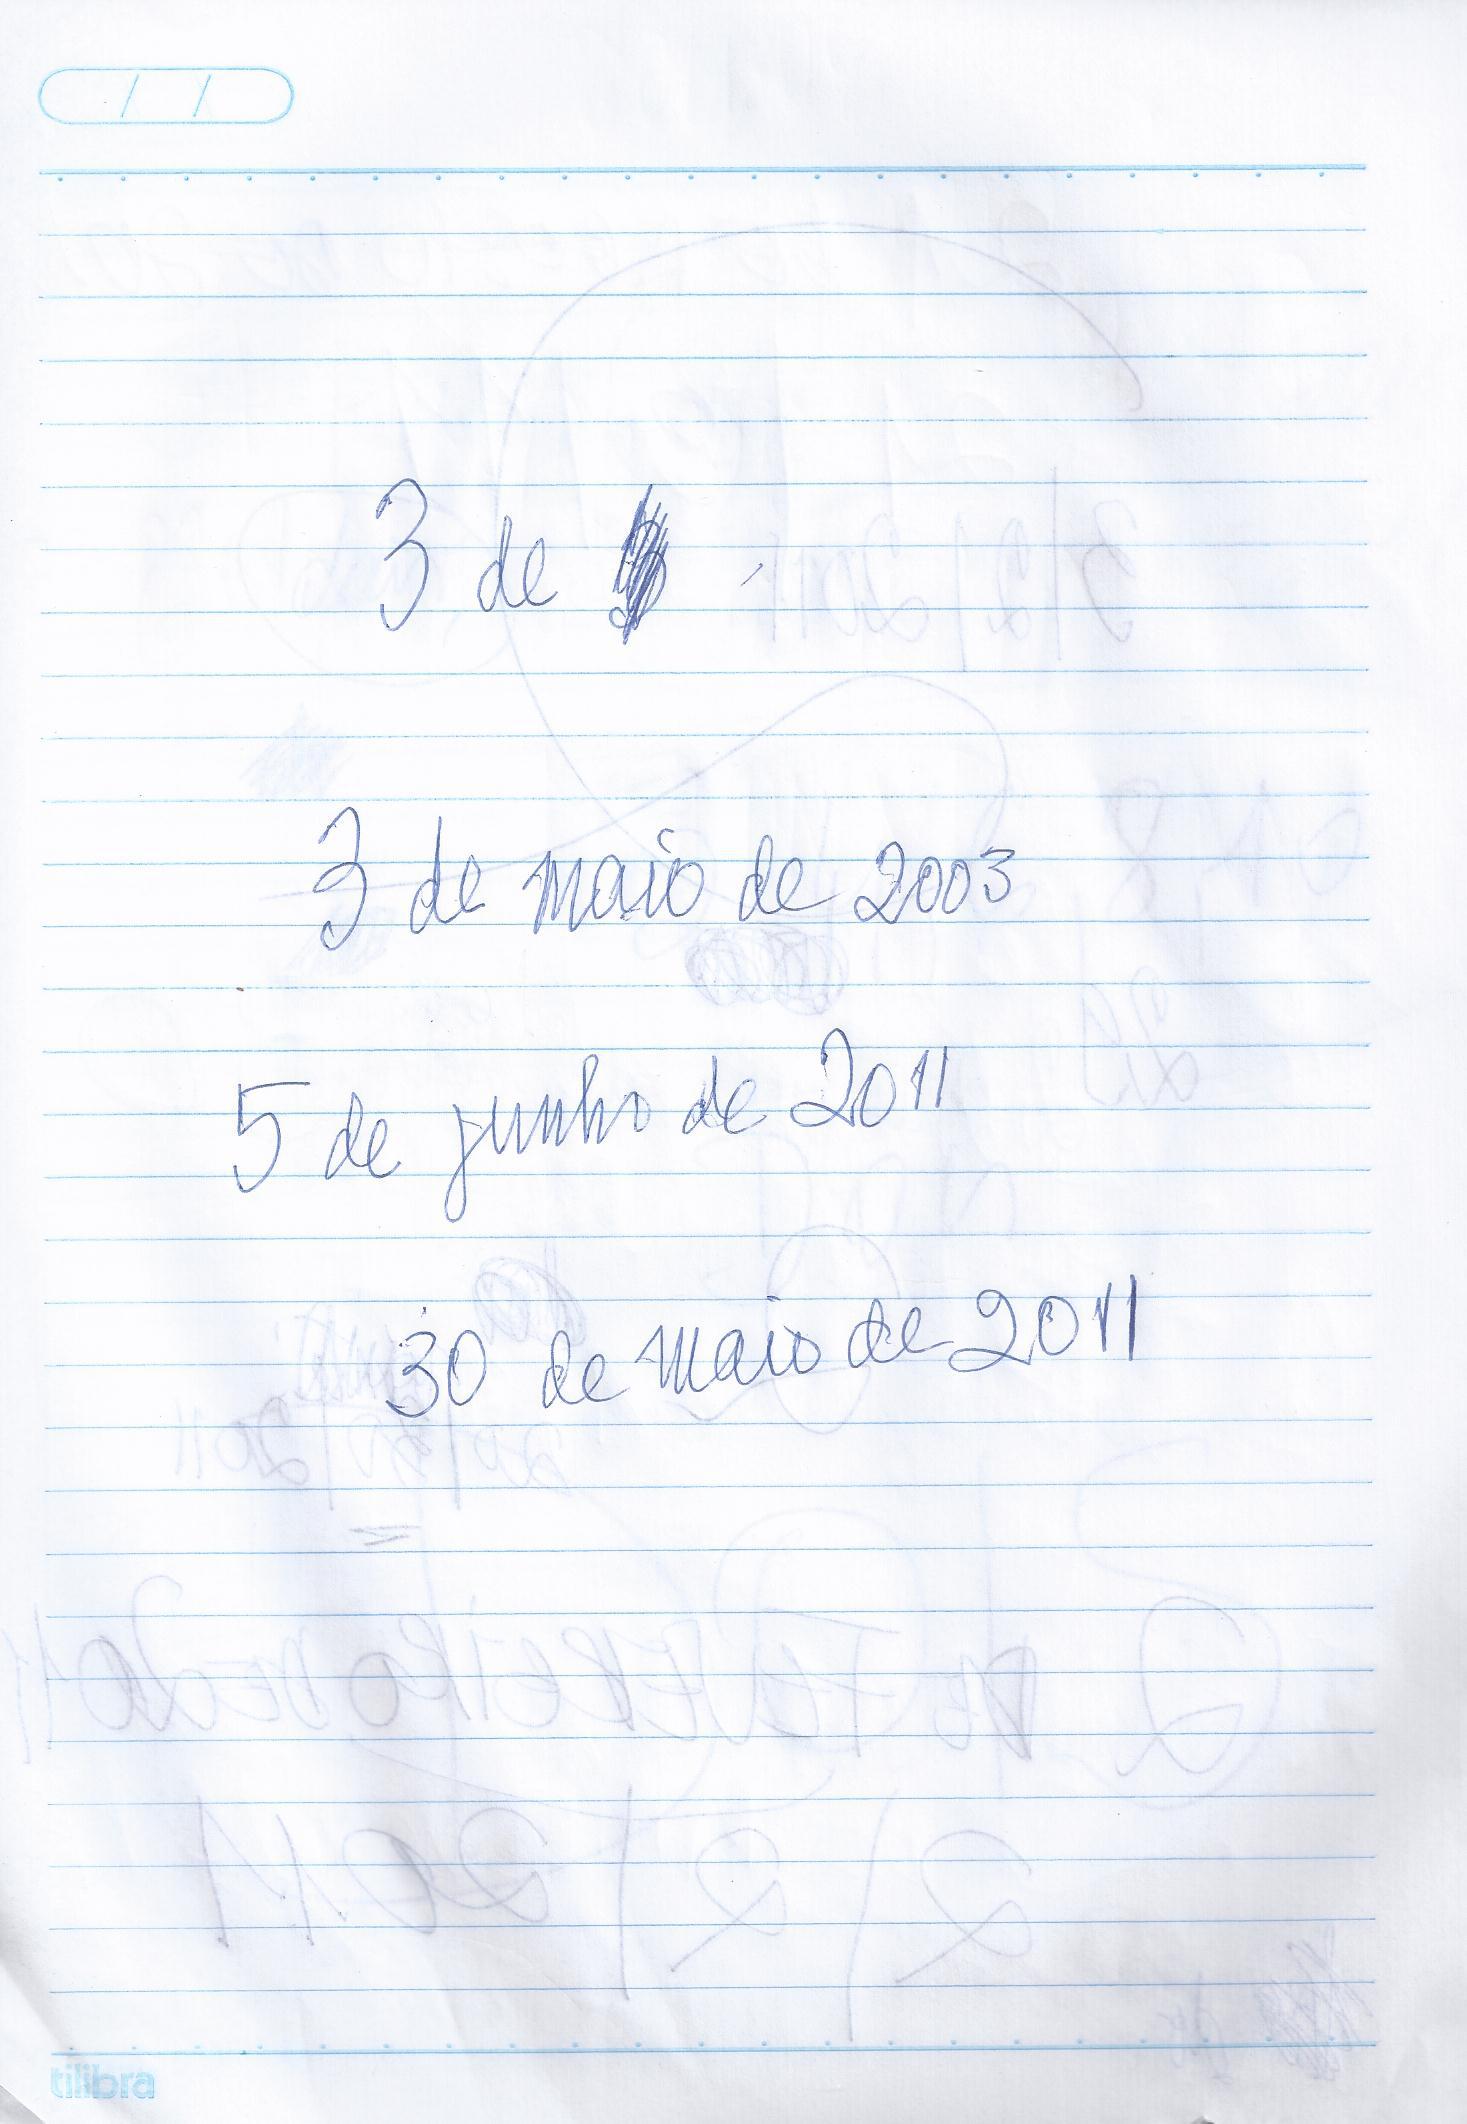 3 de
3 de maio de 2003
5 de junho de 2011
30 de maio de 2011
tilibra